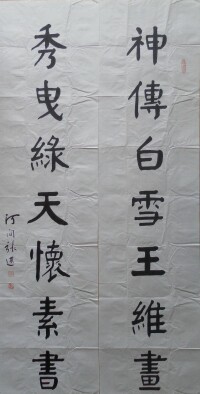 神傳白雪王維畫
秀曳綠天懷素書